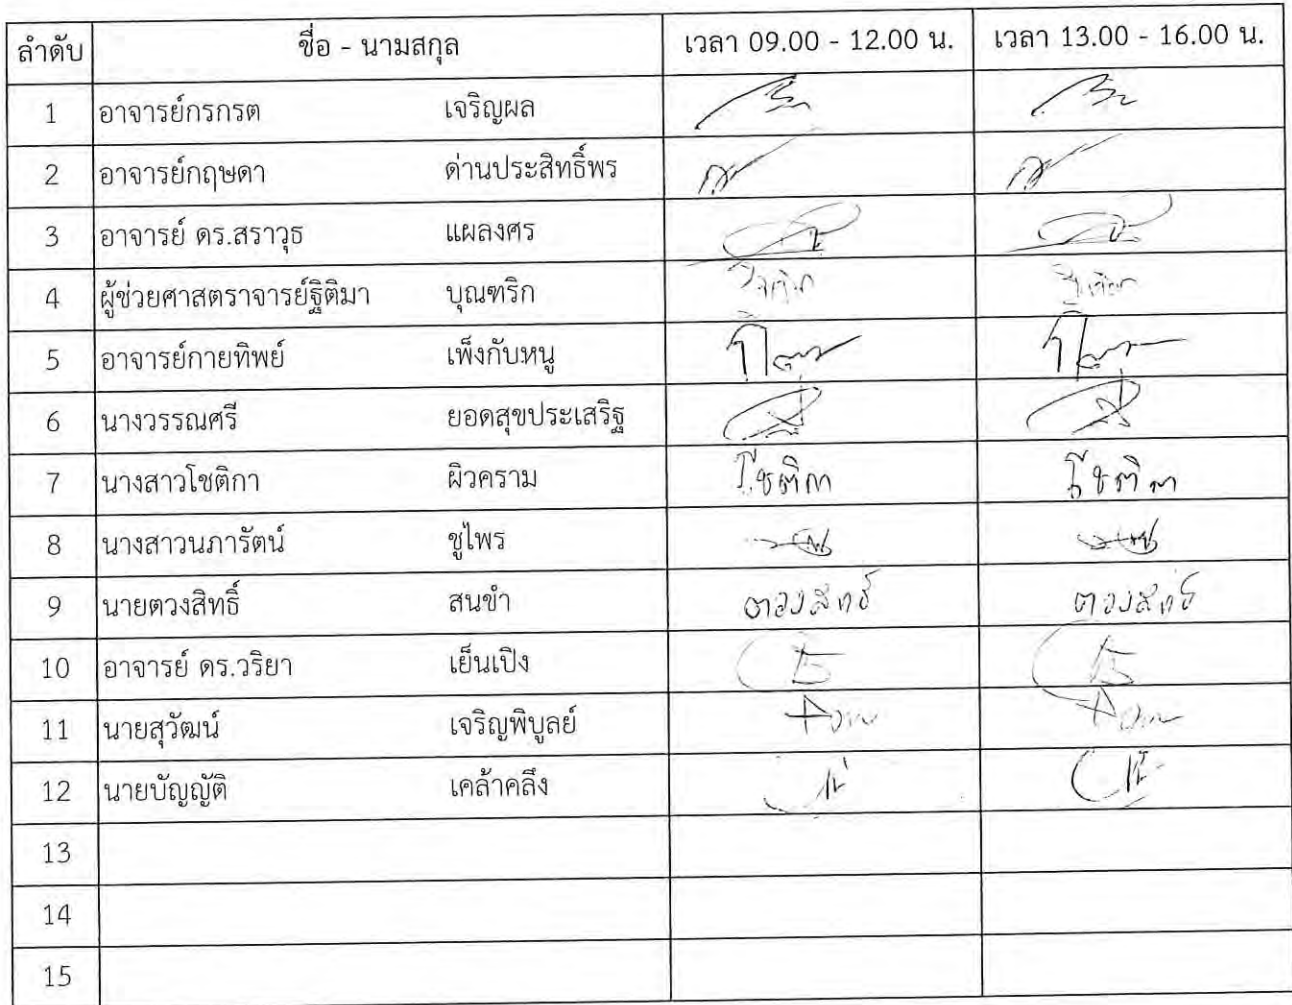 ลำดับ ชื่อ - นามสกุล เวลา 09.00 - 12.00 น. เวลา 13.00 - 16.00 น.
1 อาจารย์กรกรต เจริญผล
2 อาจารย์กฤษดา ด่านประสิทธิ์พร
3 อาจารย์ ดร.สราวุธ แผลงศร
4 ผู้ช่วยศาสตราจารย์ฐิติมา บุณฑริก
5 อาจารย์กายทิพย์ เพ็งกับหนู
6 นางวรรณศรี ยอดสุขประเสริฐ
7 นางสาวโชติกา ผิวคราม โชติกา โชติกา
8 นางสาวนภารัตน์ ชูไพร
9 นายตวงสิทธิ์ สนขำ ตวงสิทธิ์ ตวงสิทธิ์
10 อาจารย์ ดร.วริยา เย็นเปิง
11 นายสุวัฒน์ เจริญพิบูลย์
12 นายบัญญัติ เคล้าคลึง
13
14
15